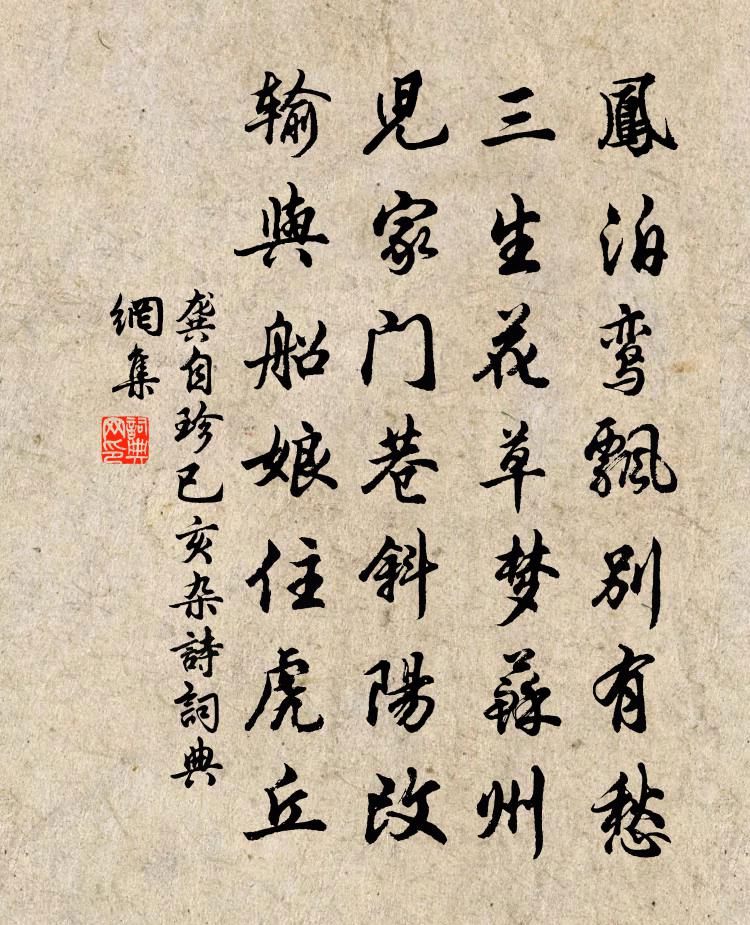 鳳泊鸾飄别有愁
三生花草梦蘇州
兒家門巷斜陽改
输與船娘住虎丘
龚自珍己亥杂詩詞典
網集
詞典网印